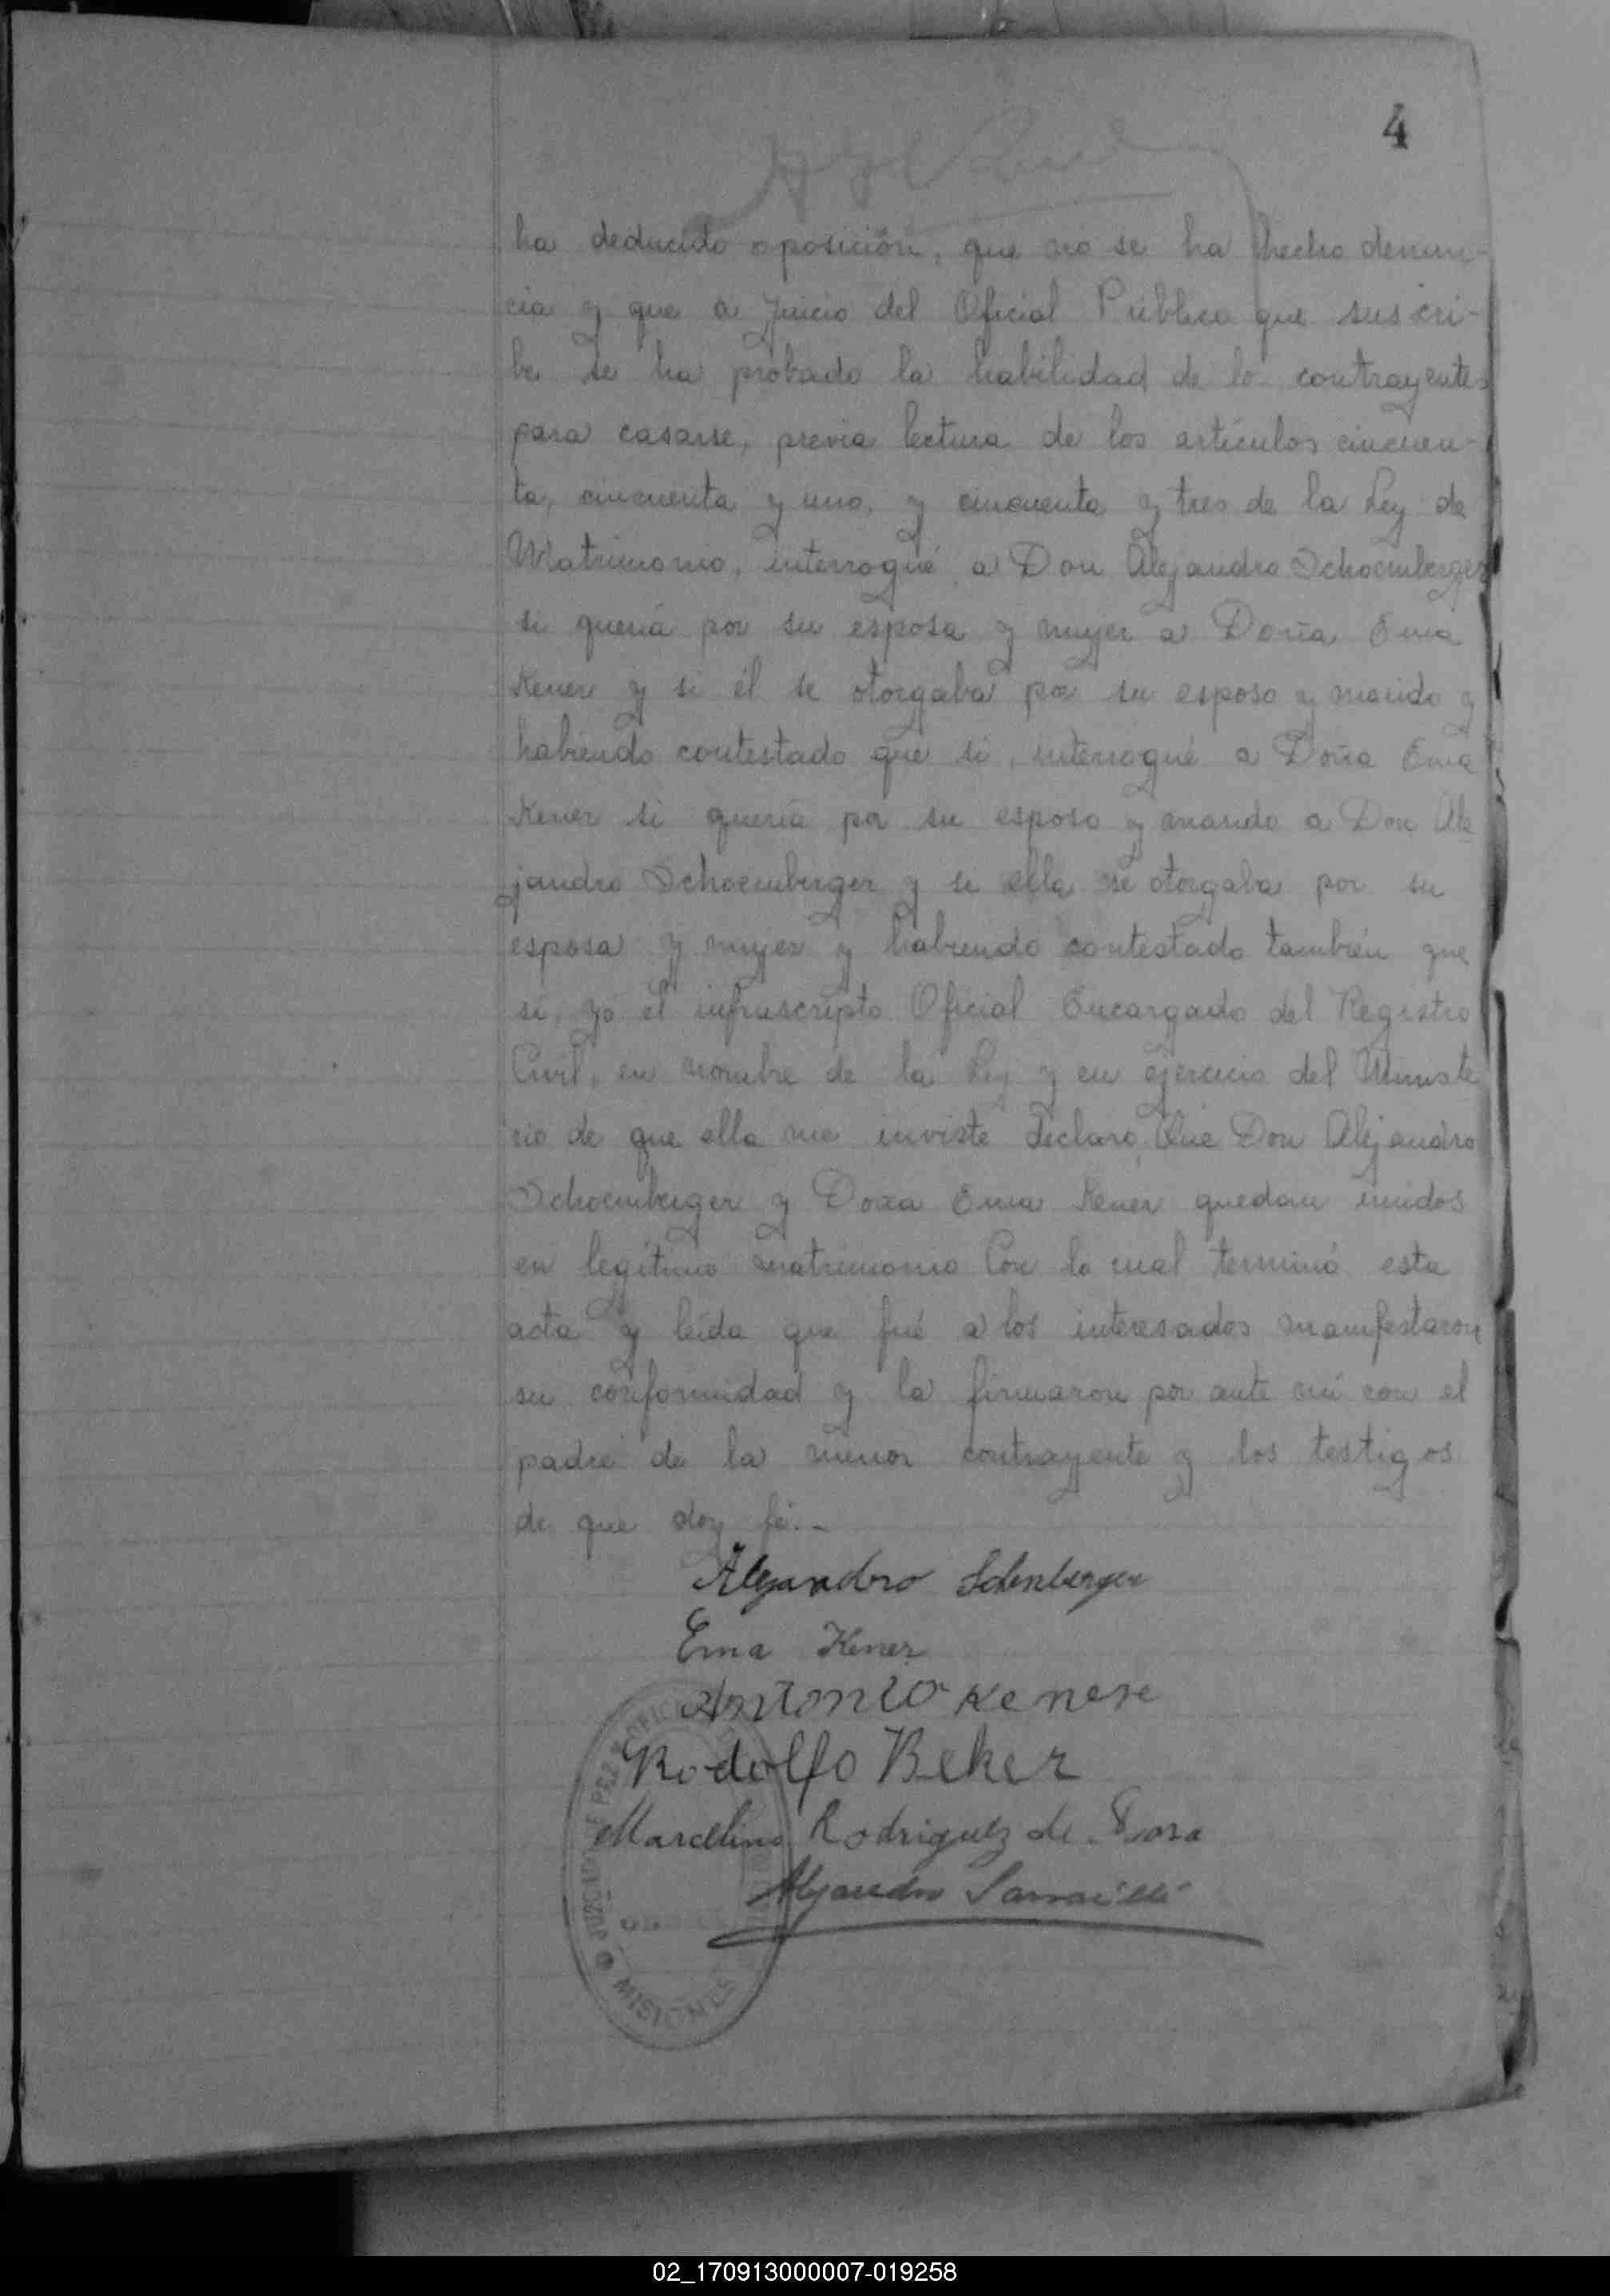 4
ha deducido oposición, que no se ha hecho denun-
cia y que a juicio del Oficial Público que suscri-
be se ha probado la habilidad de lo contrayentes
para casarse, previa lectura de los artículos cincuen-
ta, cincuenta y uno, y cincuenta y tres de la Ley de
Matrimonio, interrogué a Don Alejandro Schoemberger
si quería por su esposa y mujer a Doña Ema
Kener y si él se otorgaba por su esposo y marido y
habiendo contestado que si, interrogué a Doña Ema
Kener si quería por su esposo y marido a Don Ale
jandro Schoemberger y si ella se otorgaba por su
esposa y mujer y habiendo contestado también que
si, yo el infrascripto Oficial Encargado del Registro
Civil, en nombre de la Ley y en ejercicio del Ministe
rio de que ella me inviste declaro, Que Don Alejandro
Schoemberger y Doña Ema Kener quedan unidos
en legítimo matrimonio Con lo cual terminó esta
acta y leída que fué a los interesados manifestaron
su conformidad y la firmaron por ante mi con el
padre de la menor contrayente y los testigos
de que doy fé.-
Alejandro Schenberger
Ema Kener
Antonio Kener
Rodolfo Beker
Marcelino Rodriguez de
Alejandro
JUZGADO DE PAZ
MISIONES
02_170913000007-019258